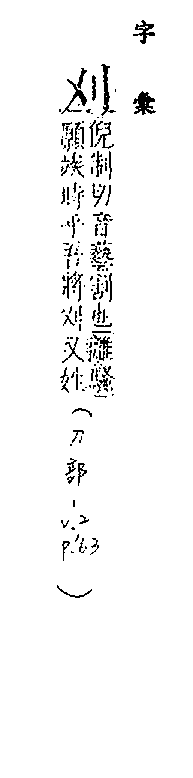 字彙
刈
倪制切音藝割也離騷
願竢時乎吾將刈又姓
(刀部-
v.2
p.'63)